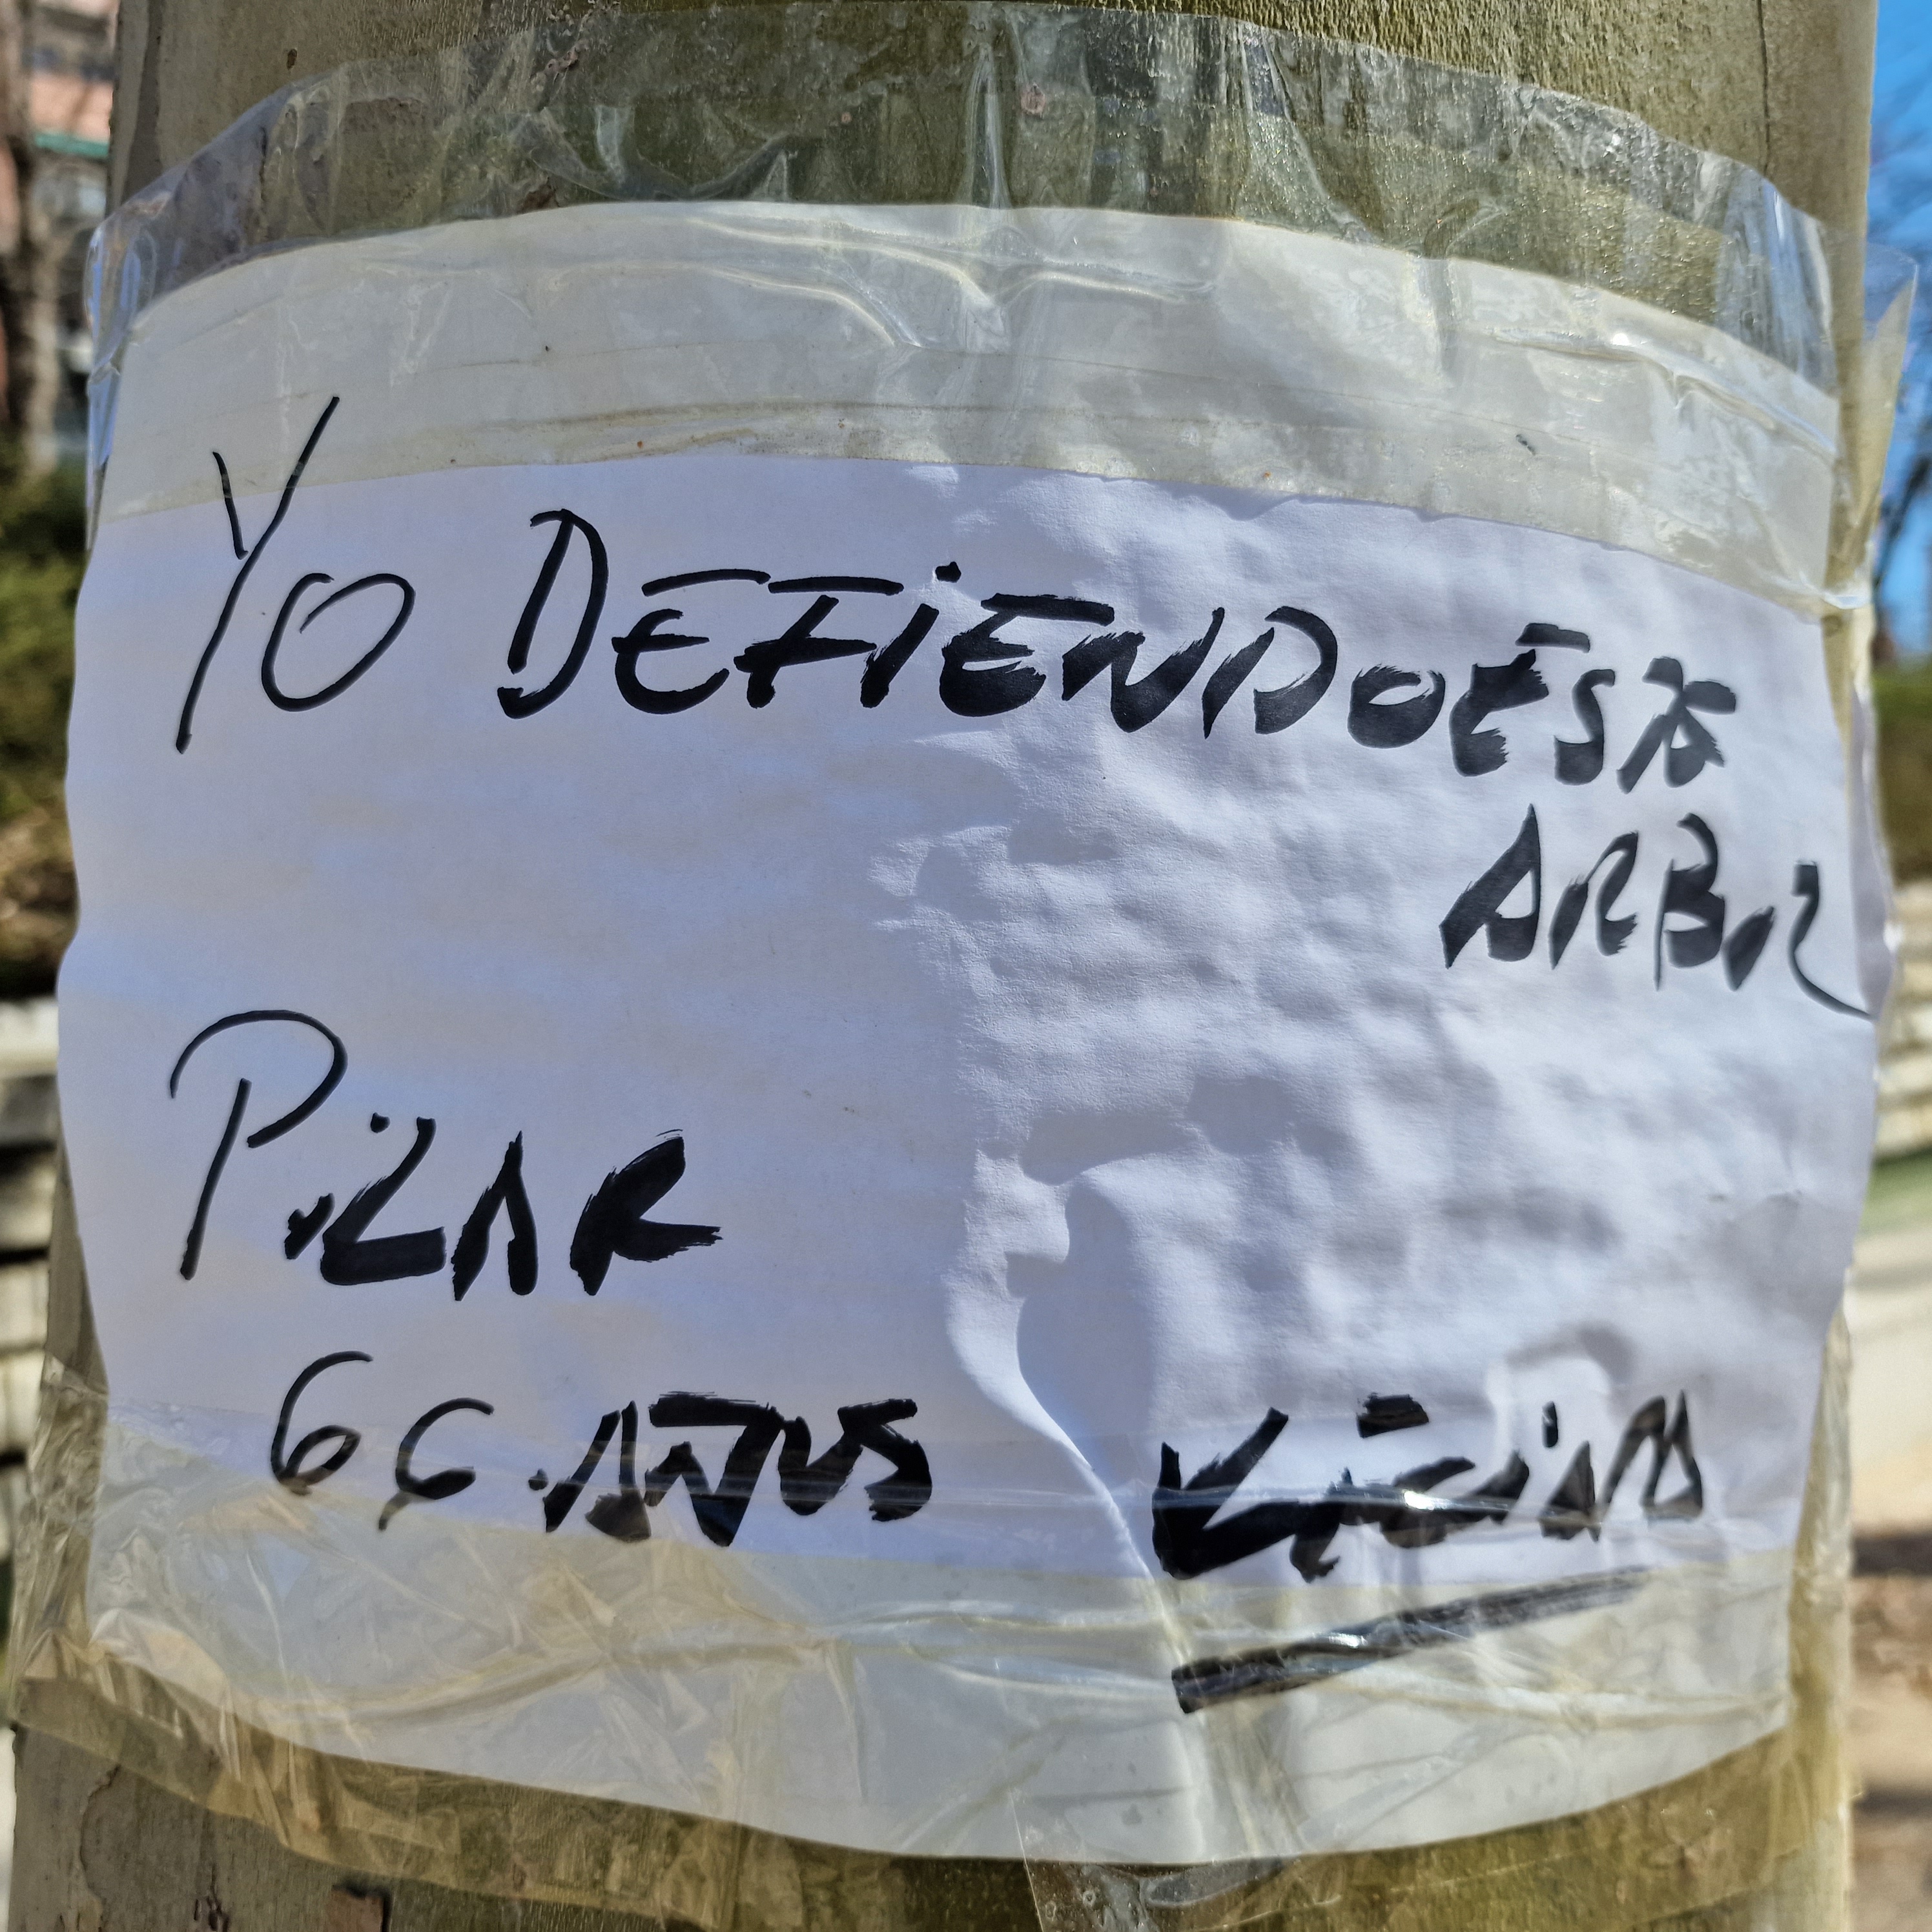 YO DEFIENDO ESTE
ARBOL
PILAR
66 AÑOS VECINA